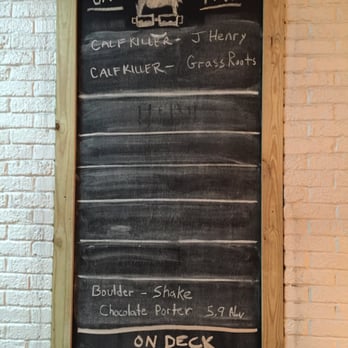 CALFKILLER - J Henry
CALFKILLER - GrassRoots
Boulder - Shake
Chocolate Porter 5.9 Abv.
ON DECK